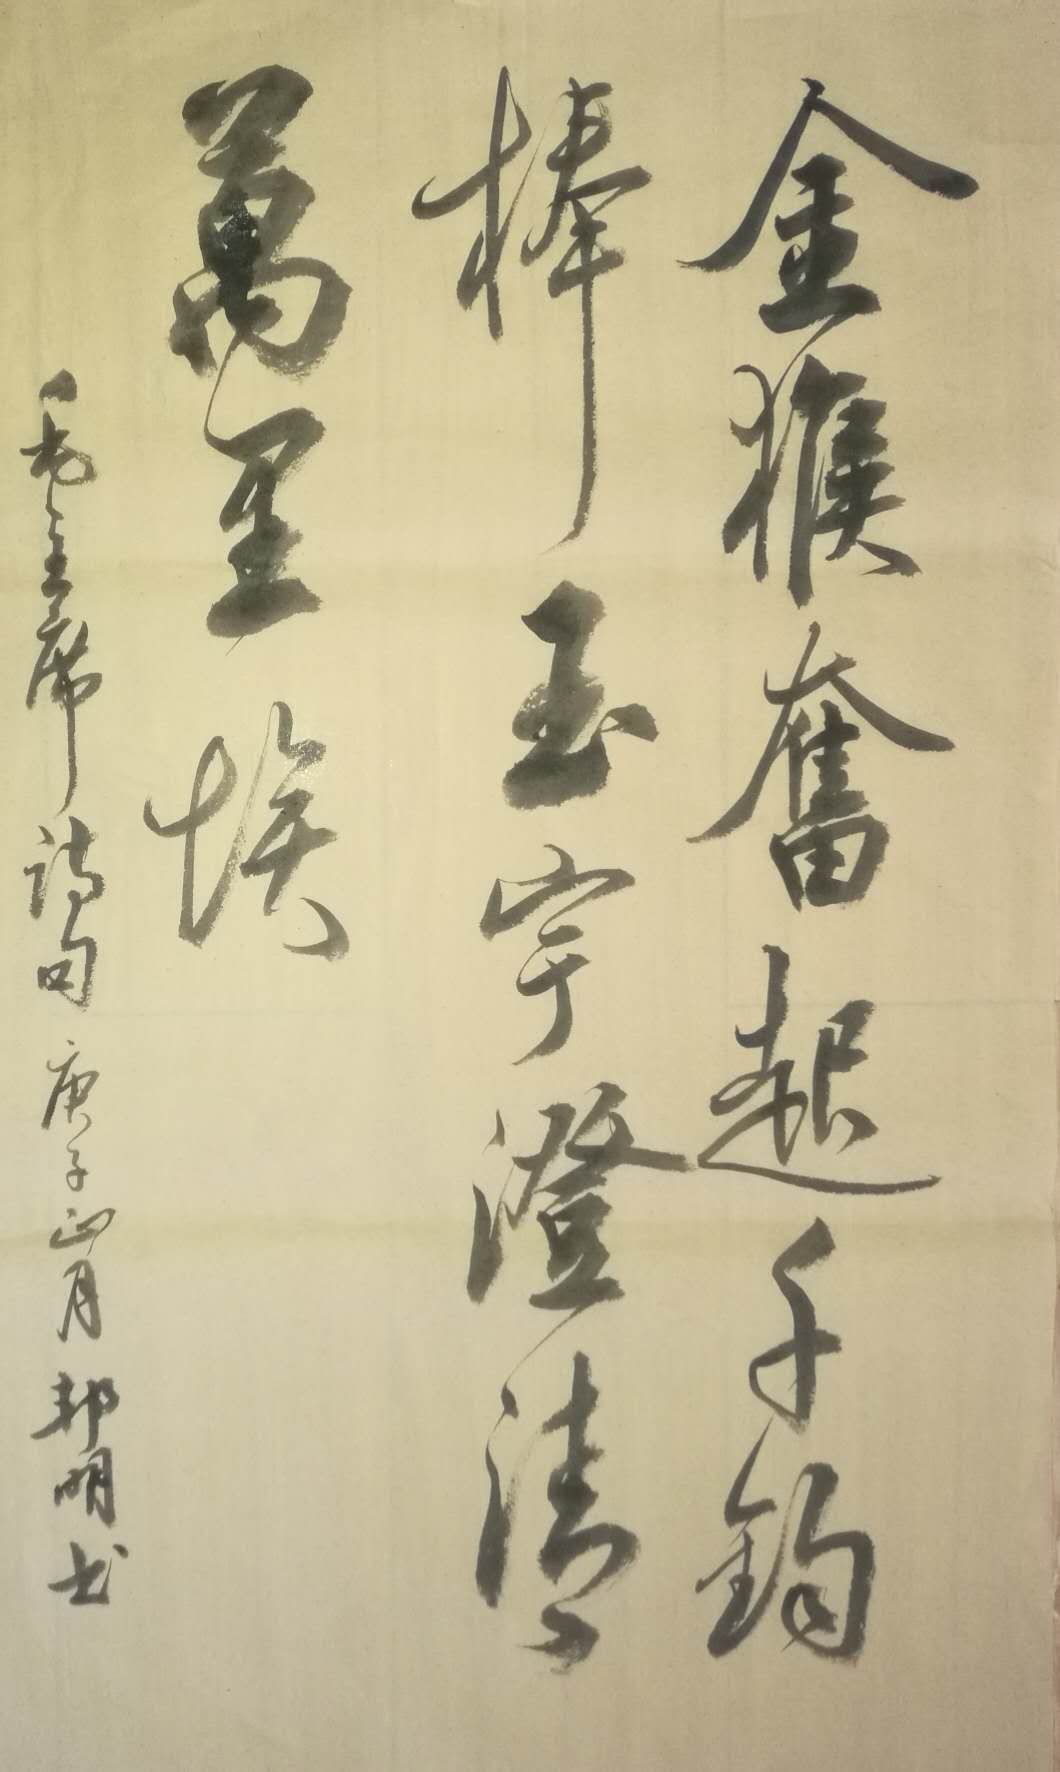 金猴奮起千鈞
棒玉宇澄清
萬里埃
毛主席詩句庚子正月邦明书